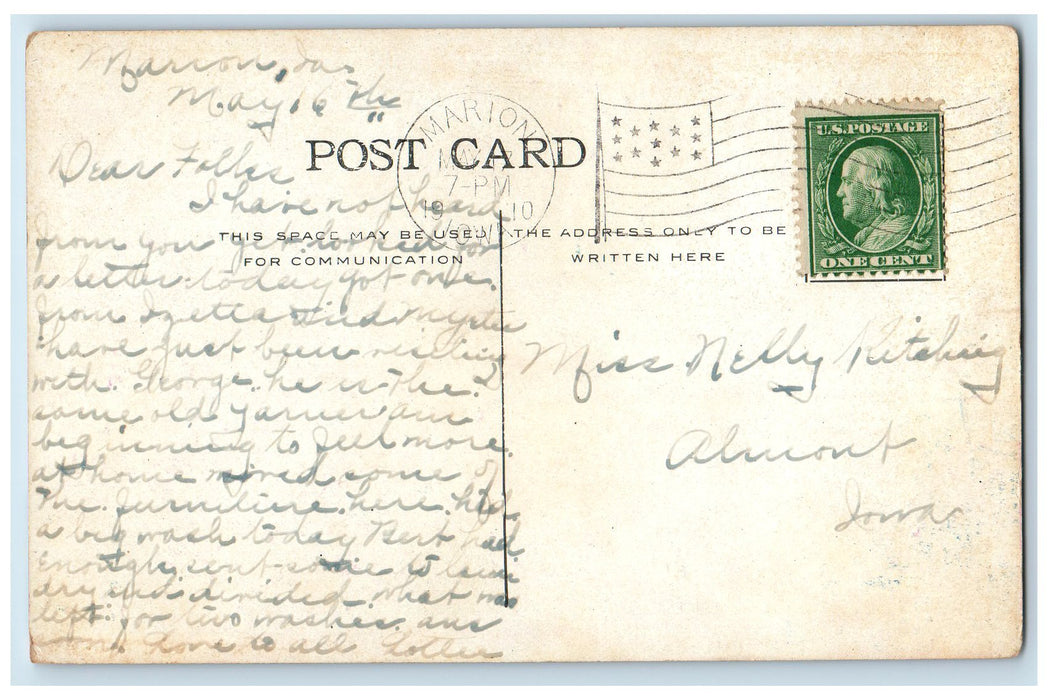 Marion, Ia
May 16th
POST CARD
MARION
MAY
7-PM
1910
IOWA
U.S. POSTAGE
ONE CENT
THIS SPACE MAY BE USED
FOR COMMUNICATION
THE ADDRESS ONLY TO BE
WRITTEN HERE
Dear Folks
I have not heard
from you yet. looked for
a letter today got one
from Izetta and Myrtle
have just been visiting
with George. he is the
same old
beginning to feel more
at home moved some of
the furniture here. had
a big wash today Bert had
enough, sent some to laun
dry and divided what was
left for two washes. am
Love to all
Miss Nelly
Almont
Iowa